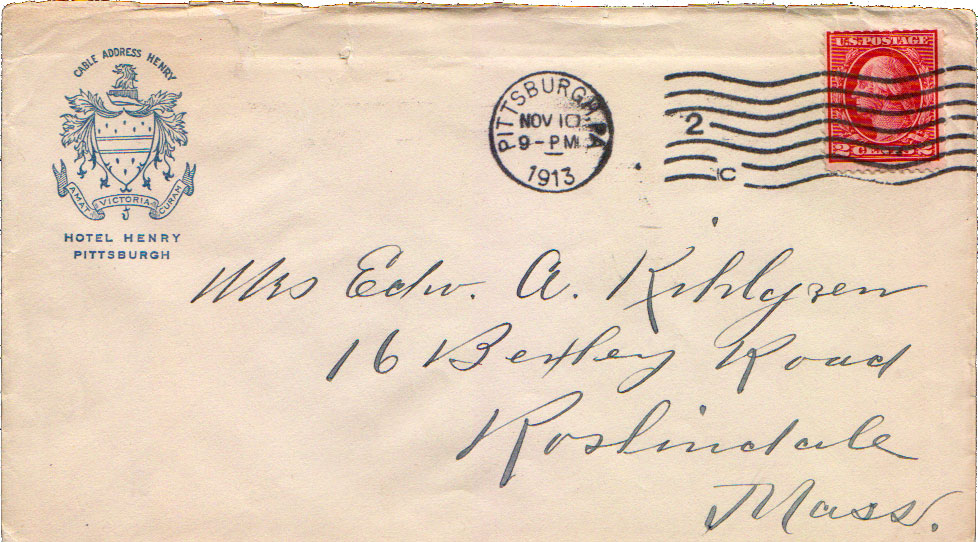 CABLE ADDRESS HENRY
AMAT VICTORIA CURAM
HOTEL HENRY
PITTSBURGH
PITTSBURGH, PA
NOV 10
9-PM
1913
2
C
U.S. POSTAGE
2 CENTS 2
Mrs Edw. A. Kihlgren
16 Bexley Road
Roslindale
Mass.